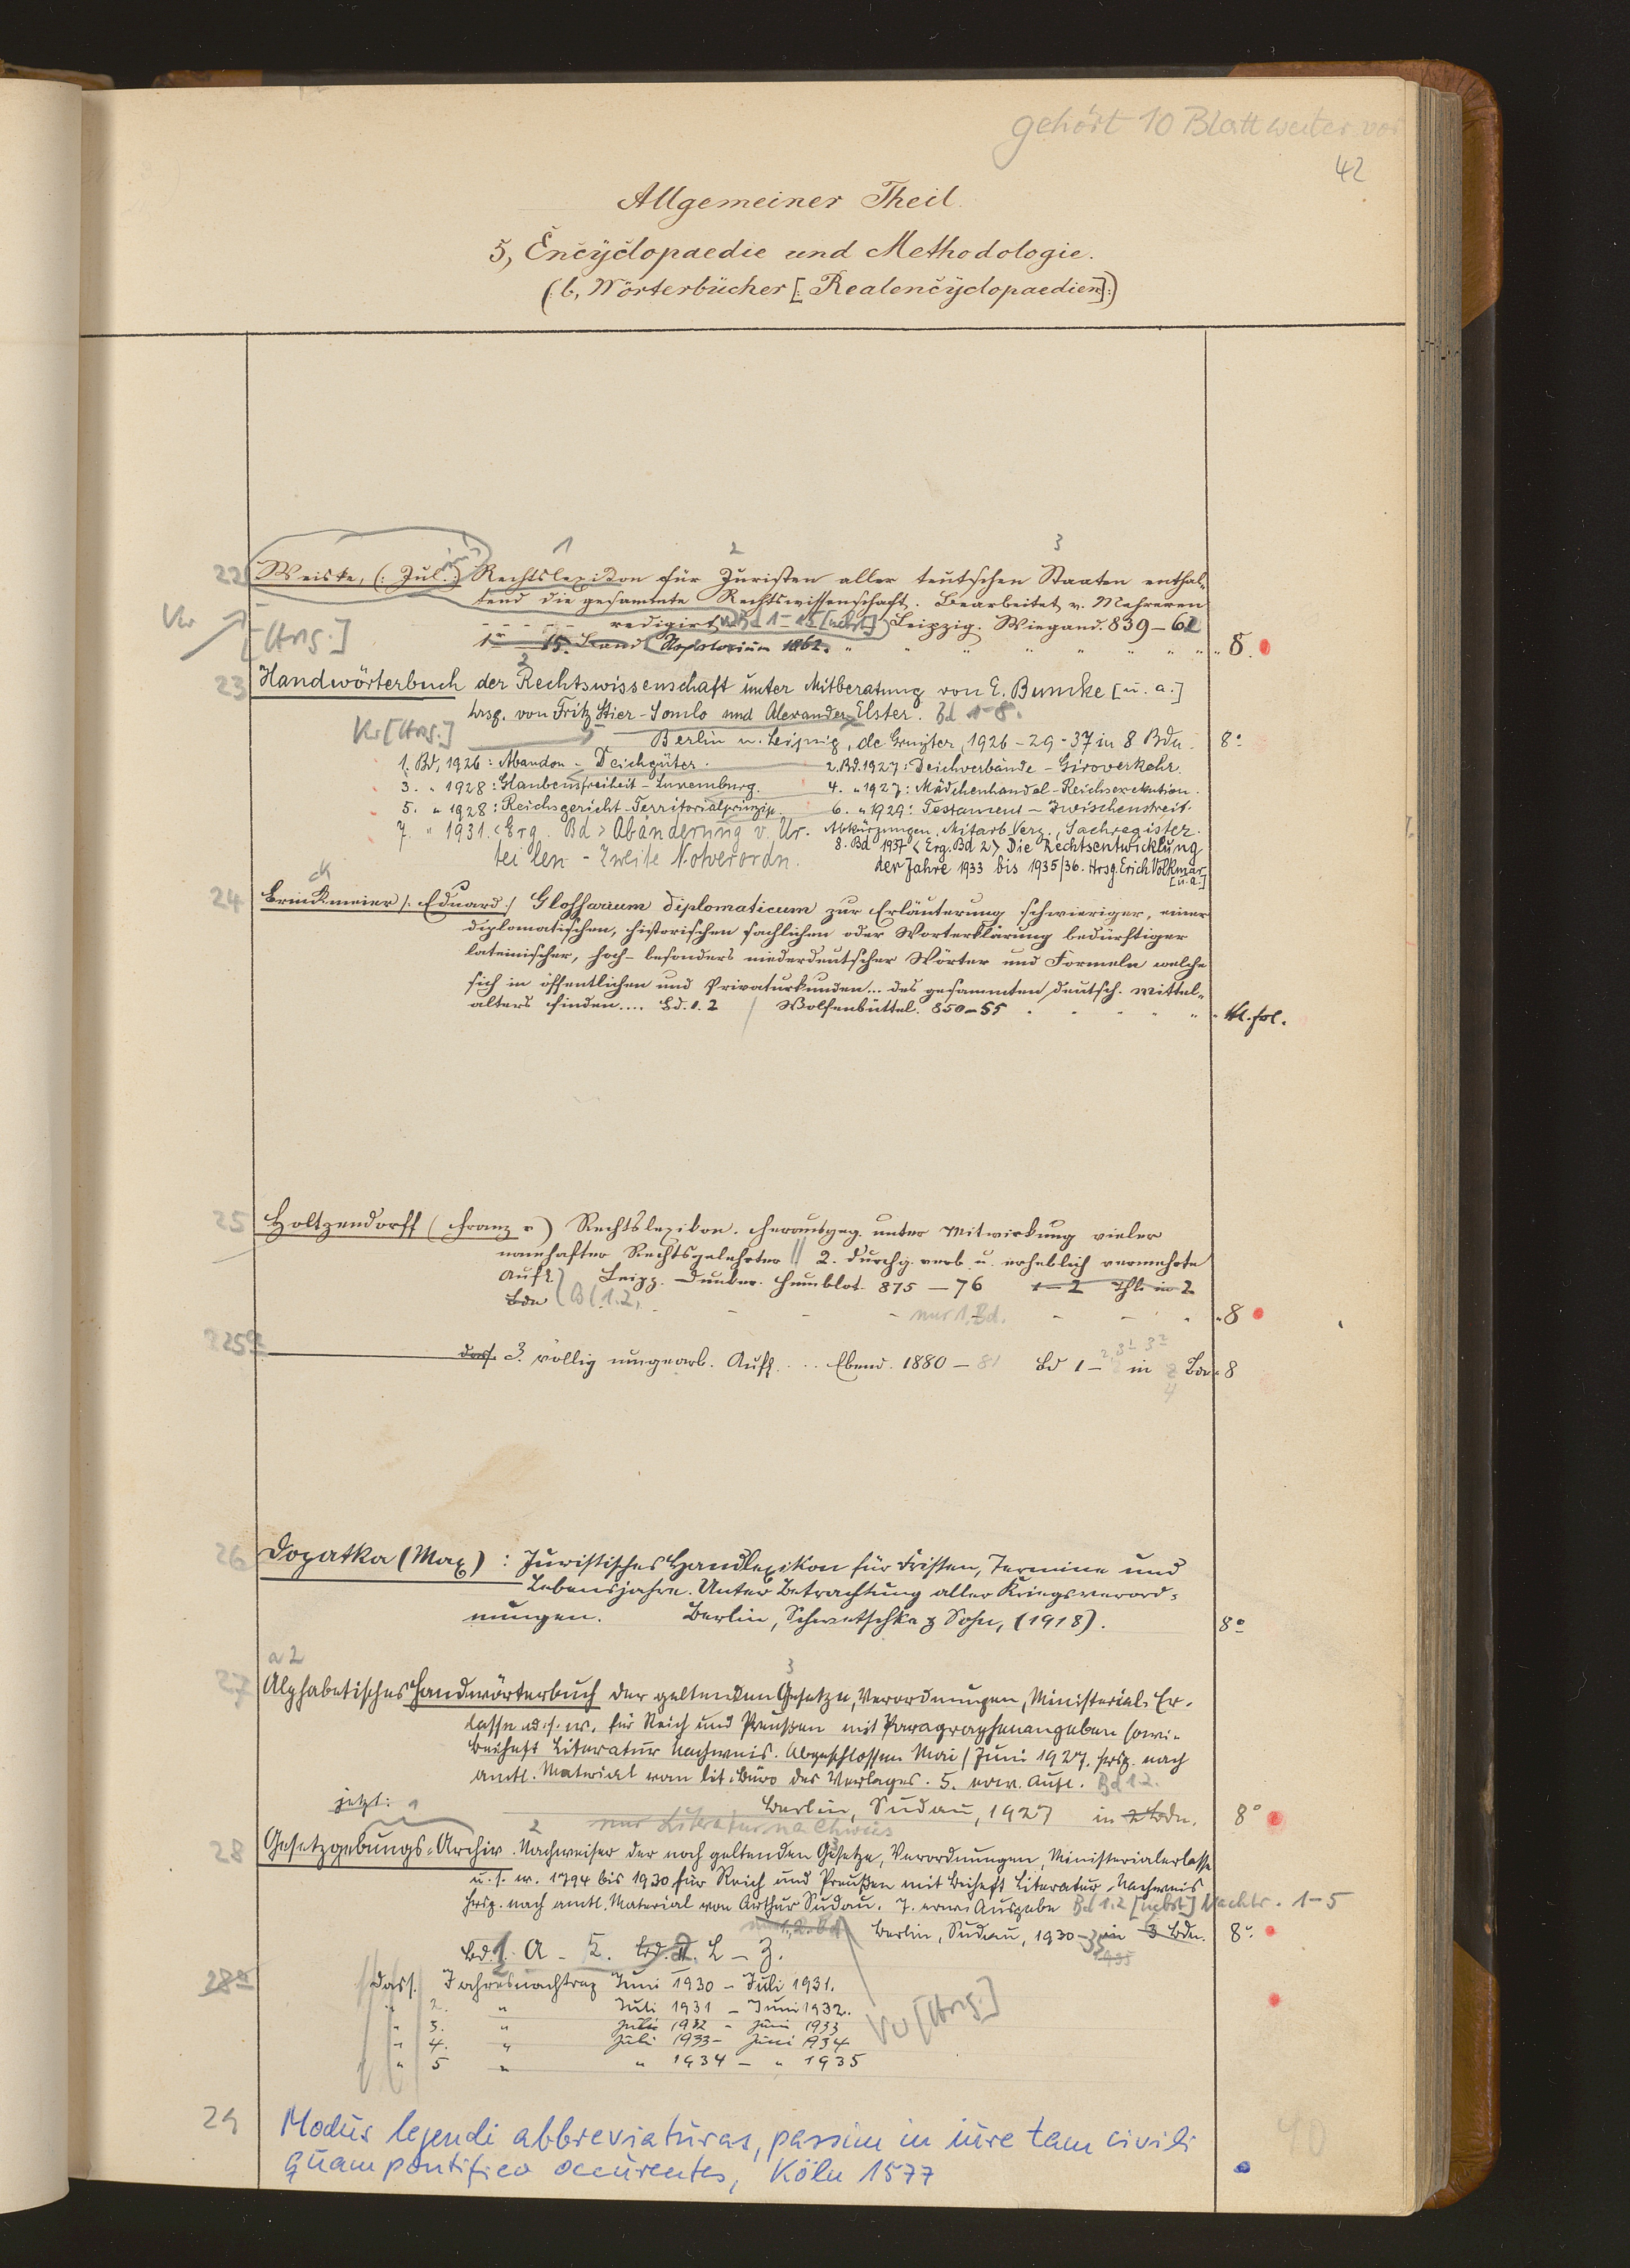 gehört 10 Blatt weiter vor
42
Allgemeiner Theil.
5, Encÿclopaedie und Methodologie.
(: b, Wörterbücher [: Realencÿclopaedien:] :)
1 2 3
22 Weiske, (: Jul. :) Rechtslexikon für Juristen aller teutschen Staaten enthal-
tend die gesammte Rechtswissenschaft. Bearbeitet v. Mehreren
redigirt Bd 1-15 [nebst] Leipzig. Wiegand. 839-62
[Hrsg.]
1r 15. Band Repertorium 1862. 8.
23 Handwörterbuch der Rechtswissenschaft unter Mitberatung von E. Bumke [u. a.]
hrsg. von Fritz Stier-Somlo und Alexander Elster. Bd 1-8.
Vw [Hrsg.] Berlin u. Leipzig, de Gruyter, 1926-29-37 in 8 Bdn. 8°
1. Bd, 1926: Abandon - Deichgüter. 2. Bd. 1927: Deichverbände - Giroverkehr.
3. " 1928: Glaubensfreiheit - Luxemburg. 4. " 1927: Mädchenhandel - Reichsexekution.
5. " 1928: Reichsgericht - Territorialprinzip. 6. " 1929: Testament - Zwischenstreit.
7. " 1931. <Erg. Bd> Abänderung v. Ur- Abkürzungen, Mitarb. Verz., Sachregister.
teilen - Zweite Notverordn. 8. Bd 1937 <Erg. Bd 2> Die Rechtsentwicklung
der Jahre 1933 bis 1935/36. Hrsg. Erich Volkmar
[u. a.]
ck
24 Brinkmeier /: Eduard :/ Glossarium diplomaticum zur Erläuterung schwieriger, einer
diplomatischen, historischen sachlichen oder Worterklärung bedürftiger
lateinischer, hoch- besonders niederdeutscher Wörter und Formeln welche
sich in öffentlichen und Privaturkunden... des gesammten deutsch. Mittel-
alters finden.... Bd. 1. 2 / Wolfenbüttel. 850-55 kl. fol.
25 Holtzendorff (Franz v) Rechtslexikon. Herausgeg. unter Mitwirkung vieler
namhafter Rechtsgelehrter // 2. durchg. verb. u. erheblich vermehrte
Aufl. Leipz. Duncker. Humblot. 875-76 1-2 Thl. in 2
Bdn (B(1.2. nur 1. Bd. 8
25a dass. 3. völlig umgearb. Aufl. ... Ebend. 1880-81 Bd 1- in Bdn 8
4
26 Dopatka (Max): Juristisches Handlexikon für Fristen, Termine und
Lebensjahre. Unter Betrachtung aller Kriegsverord-
nungen. Berlin, Schwetschke & Sohn, (1918). 8°
a 2 3
27 Alphabetisches Handwörterbuch der geltenden Gesetze, Verordnungen, Ministerial-Er-
lasse u. s. w. für Reich und Preußen mit Paragraphenangaben sowie
Beiheft Literatur Nachweis. Abgeschlossen Mai/Juni 1927. hrsg. nach
amtl. Material vom lit. Büro des Verlages. 5. erw. Aufl. Bd 1.2.
Berlin, Sudau, 1927 in 2 Bdn. 8°
jetzt: 1 2 nur Literaturnachweis
28 Gesetzgebungs-Archiv. Nachweiser der noch geltenden Gesetze, Verordnungen, Ministerialerlasse
u. s. w. 1794 bis 1930 für Reich und Preußen mit Beiheft Literatur-Nachweis
hrsg. nach amtl. Material von Arthur Sudau. 7. erw. Ausgabe Bd 1.2 [nebst] Nachtr. 1-5
nur 1.2. Bd Berlin, Sudau, 1930-35 in 3 Bdn. 8°
1935
Bd. 1. A - K. Bd. 2. L - Z.
28a dass. Jahresnachtrag Juni 1930 - Juli 1931.
" 2. " Juli 1931 - Juni 1932.
" 3. " Juli 1932 - Juni 1933
" 4. " Juli 1933 - Juni 1934
" 5 " " 1934 - " 1935
Vw [Hrsg.]
29 Modus legendi abbreviaturas, passim in iure tam civili
quam pontificio occurentes, Köln 1577
40